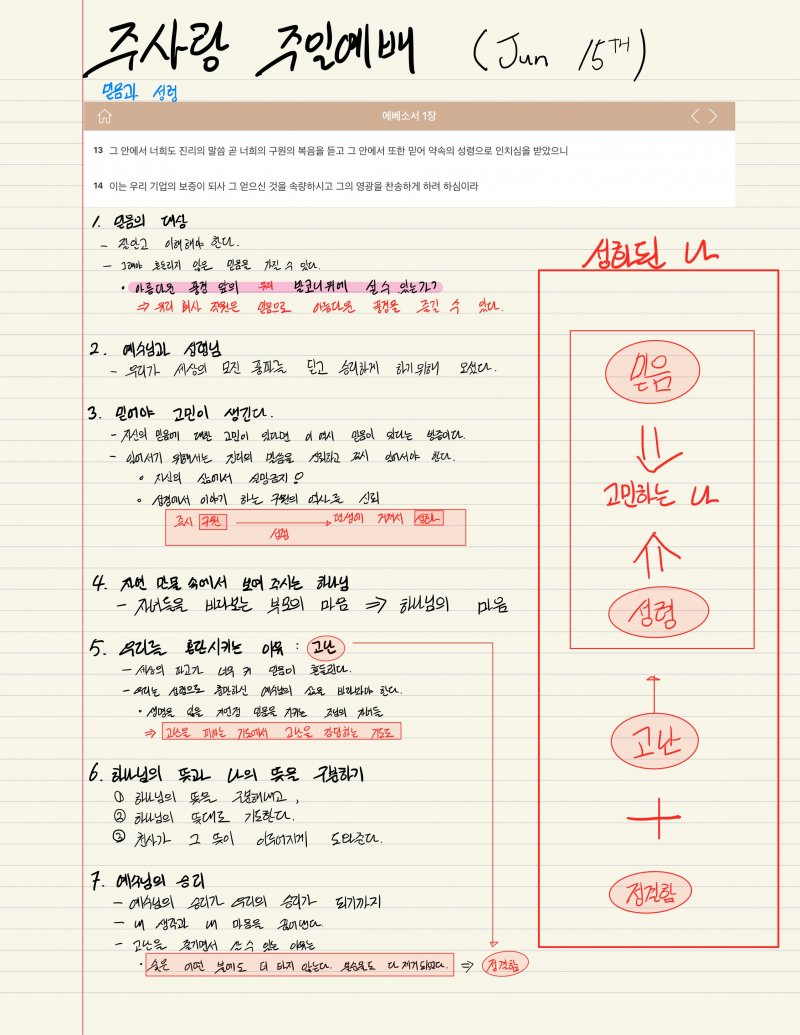 주사랑 주일예배 (Jun 15TH)
믿음과 성령
에베소서 1장
13 그 안에서 너희도 진리의 말씀 곧 너희의 구원의 복음을 듣고 그 안에서 또한 믿어 약속의 성령으로 인치심을 받았으니
14 이는 우리 기업의 보증이 되사 그 얻으신 것을 속량하시고 그의 영광을 찬송하게 하려 하심이라
1. 믿음의 대상
- 잘 알고 이해해야 한다.
- 그래야 흔들리지 않은 믿음을 가진 수 있다.
• 아름다운 풍경 앞의 우리 발코니 위에 설 수 있는가?
⇒ 우리 회사 직원은 믿음으로 아름다운 풍경을 즐길 수 있다.
2. 예수님과 성령님
- 우리가 세상의 모진 풍파를 딛고 승리하게 하기위해 오셨다.
3. 믿어야 고민이 생긴다.
- 자신의 믿음에 대한 고민이 있다면 이 역시 믿음이 있다는 반증이다.
- 믿어서기 위해서는 진리의 말씀을 신뢰하고 다시 일어서야 한다.
• 자신의 삶에서 실망금지
• 성경에서 이야기 하는 구원의 역사를 신뢰
즉시 구원 → 평생에 거쳐서 성화
성령
4. 자연 만물 속에서 보여 주시는 하나님
- 자녀들을 바라보는 부모의 마음 ⇒ 하나님의 마음
5. 우리를 흔단시키는 이유 : 고난
- 세상의 파고가 너무 커 믿음이 흔들린다.
- 우리는 성령으로 충만하신 예수님의 삶을 바라봐야 한다.
• 생명을 잃을 지언정 믿음을 지키는 주님의 자녀들
⇒ 고난을 피하는 기도에서 고난을 감당하는 기도로
6. 하나님의 뜻과 나의 뜻을 구분하기
① 하나님의 뜻을 구분해내고,
② 하나님의 뜻대로 기도한다.
③ 천사가 그 뜻이 이루어지게 도와준다.
7. 예수님의 승리
- 예수님의 승리가 우리의 승리가 되기까지
- 내 생각과 내 마음을 끊어낸다.
- 고난을 즐기면서 산 수 있는 이유는
• 숯은 어떤 불에도 더 타지 않는다. 불순물도 다 제거되었다. ⇒ 정결함
성화된 나
믿음
⇓
고민하는 나
⇑
성령
고난
+
정결함